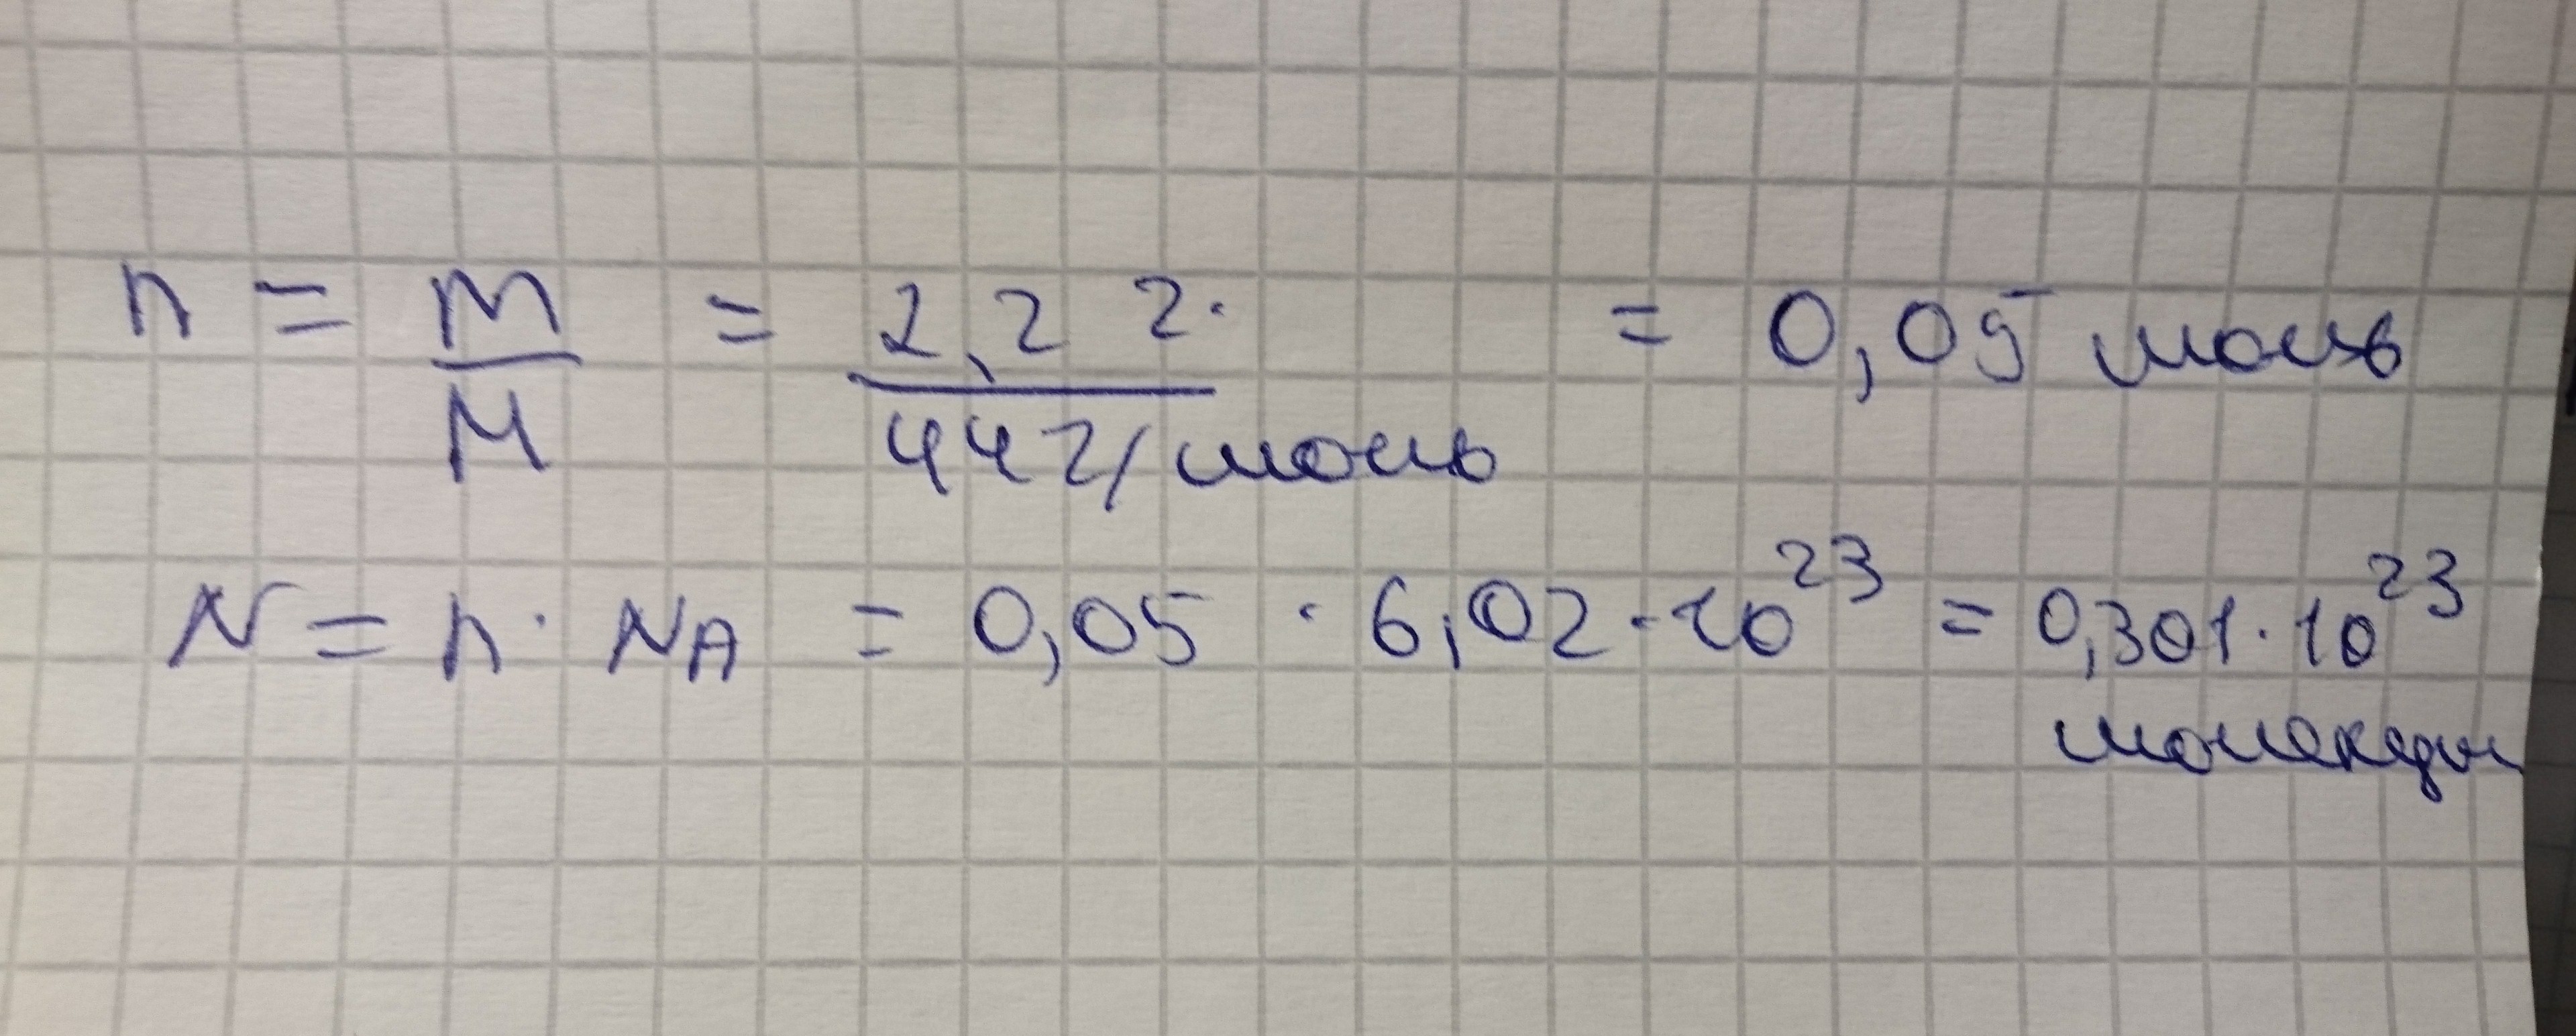 n = m/M = 2,2 г. / 44 г/моль = 0,05 моль
N = n · NA = 0,05 · 6,02 · 10^23 = 0,301 · 10^23
молекул